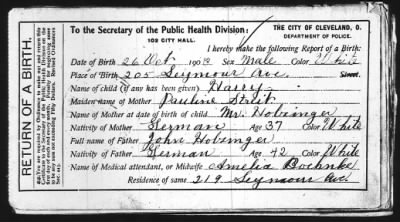 RETURN OF A BIRTH.
To the Secretary of the Public Health Division:
103 CITY HALL.
THE CITY OF CLEVELAND, O.
DEPARTMENT OF POLICE.
I hereby make the following Report of a Birth:
Date of Birth 26 Oct 190 Sex Male Color White
Place of Birth 205 Seymour Ave. Street.
Name of child (if any has been given) Harry
Maiden name of Mother Pauline Streit
Name of Mother at date of birth of child Mr. Hobzinger
Nativity of Mother German Age 37 Color White
Full name of Father John Hobzinger
Nativity of Father German Age 42 Color White
Name of Medical attendant, or Midwife Amelia Boehnke
Residence of same 219 Seymour Ave.